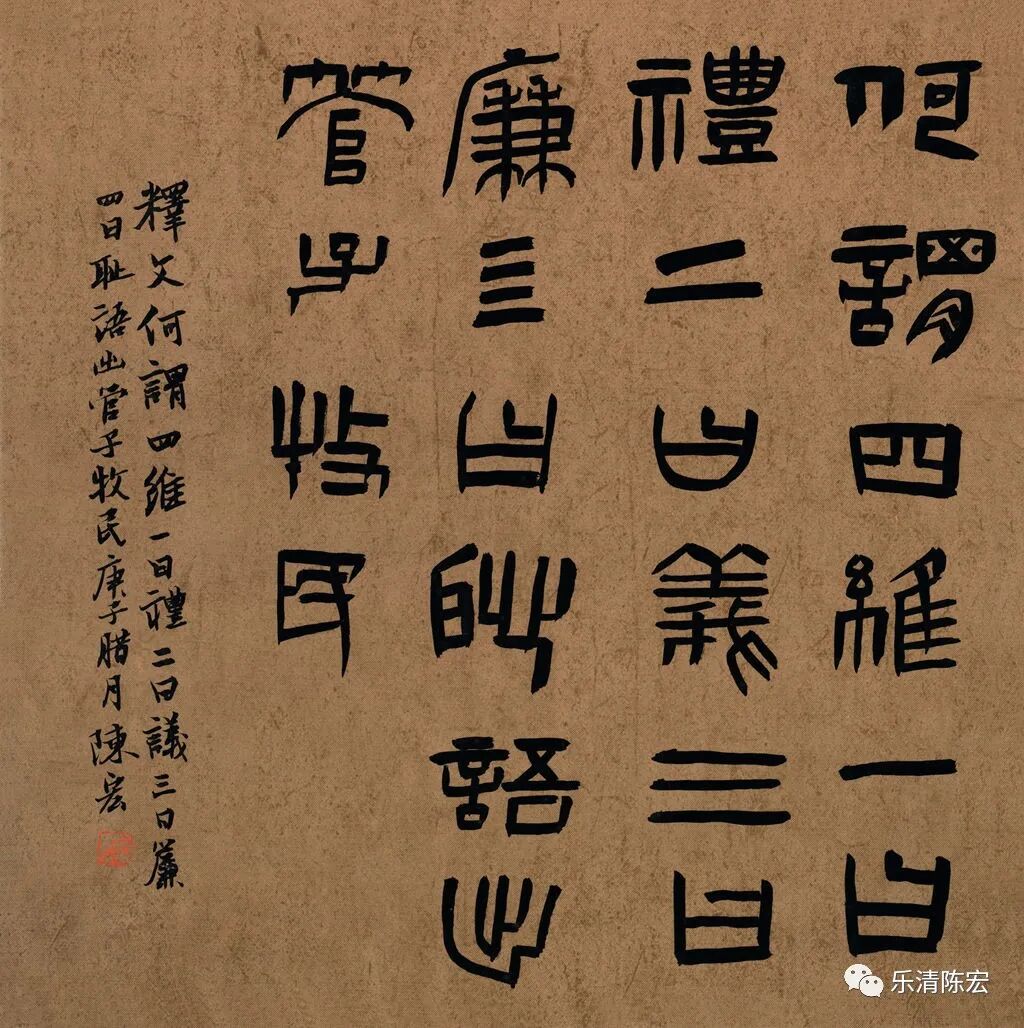 何謂四維一曰
禮二曰義三曰
廉亖曰恥語出
管子牧民
釋文何謂四維一曰禮二曰議三曰簾
四曰耻語出管子牧民庚子腊月陳宏
乐清陈宏